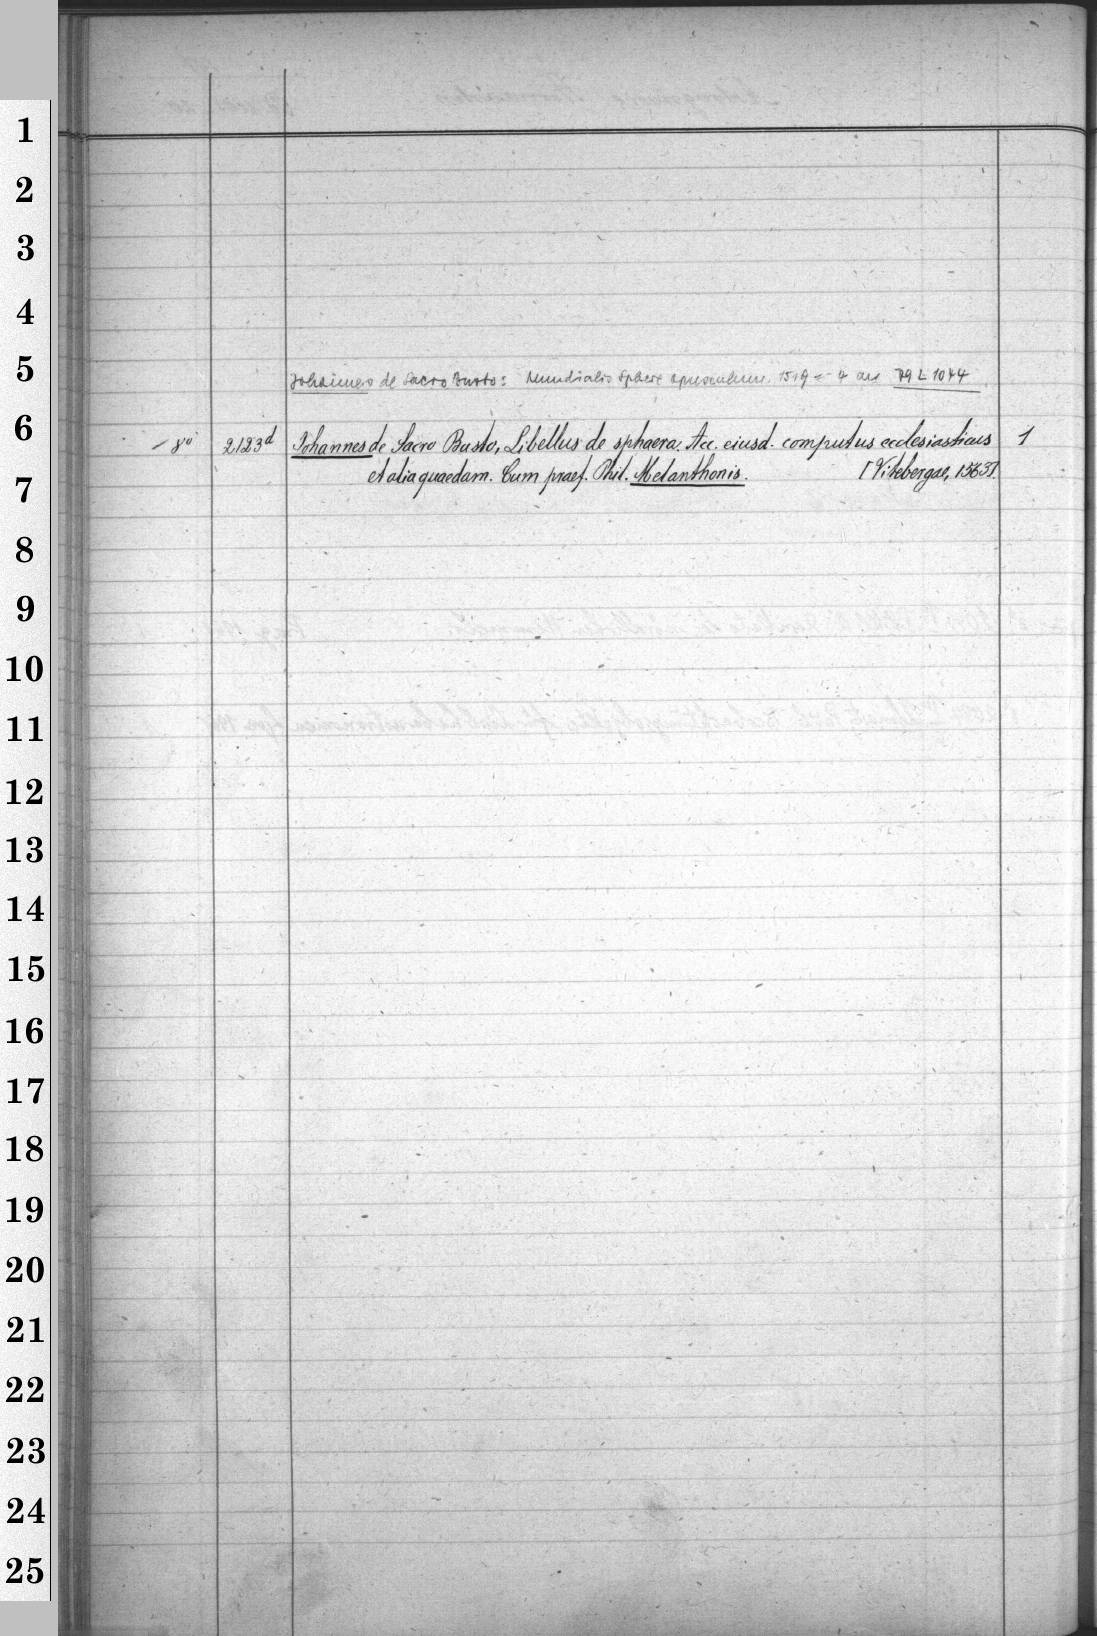 1
2
3
4
5
Johannes de Sacro Busto: Mundialis Sphere opusculum. 1519 = 4 an 79 L 1044
6
- 8° 2123d Johannes de Sacro Busto, Libellus de sphaera. Acc. eiusd. computus ecclesiasticus 1
et alia quaedam. Cum praef. Phil. Melanthonis. [Vitebergae, 1563].
7
8
9
10
11
12
13
14
15
16
17
18
19
20
21
22
23
24
25